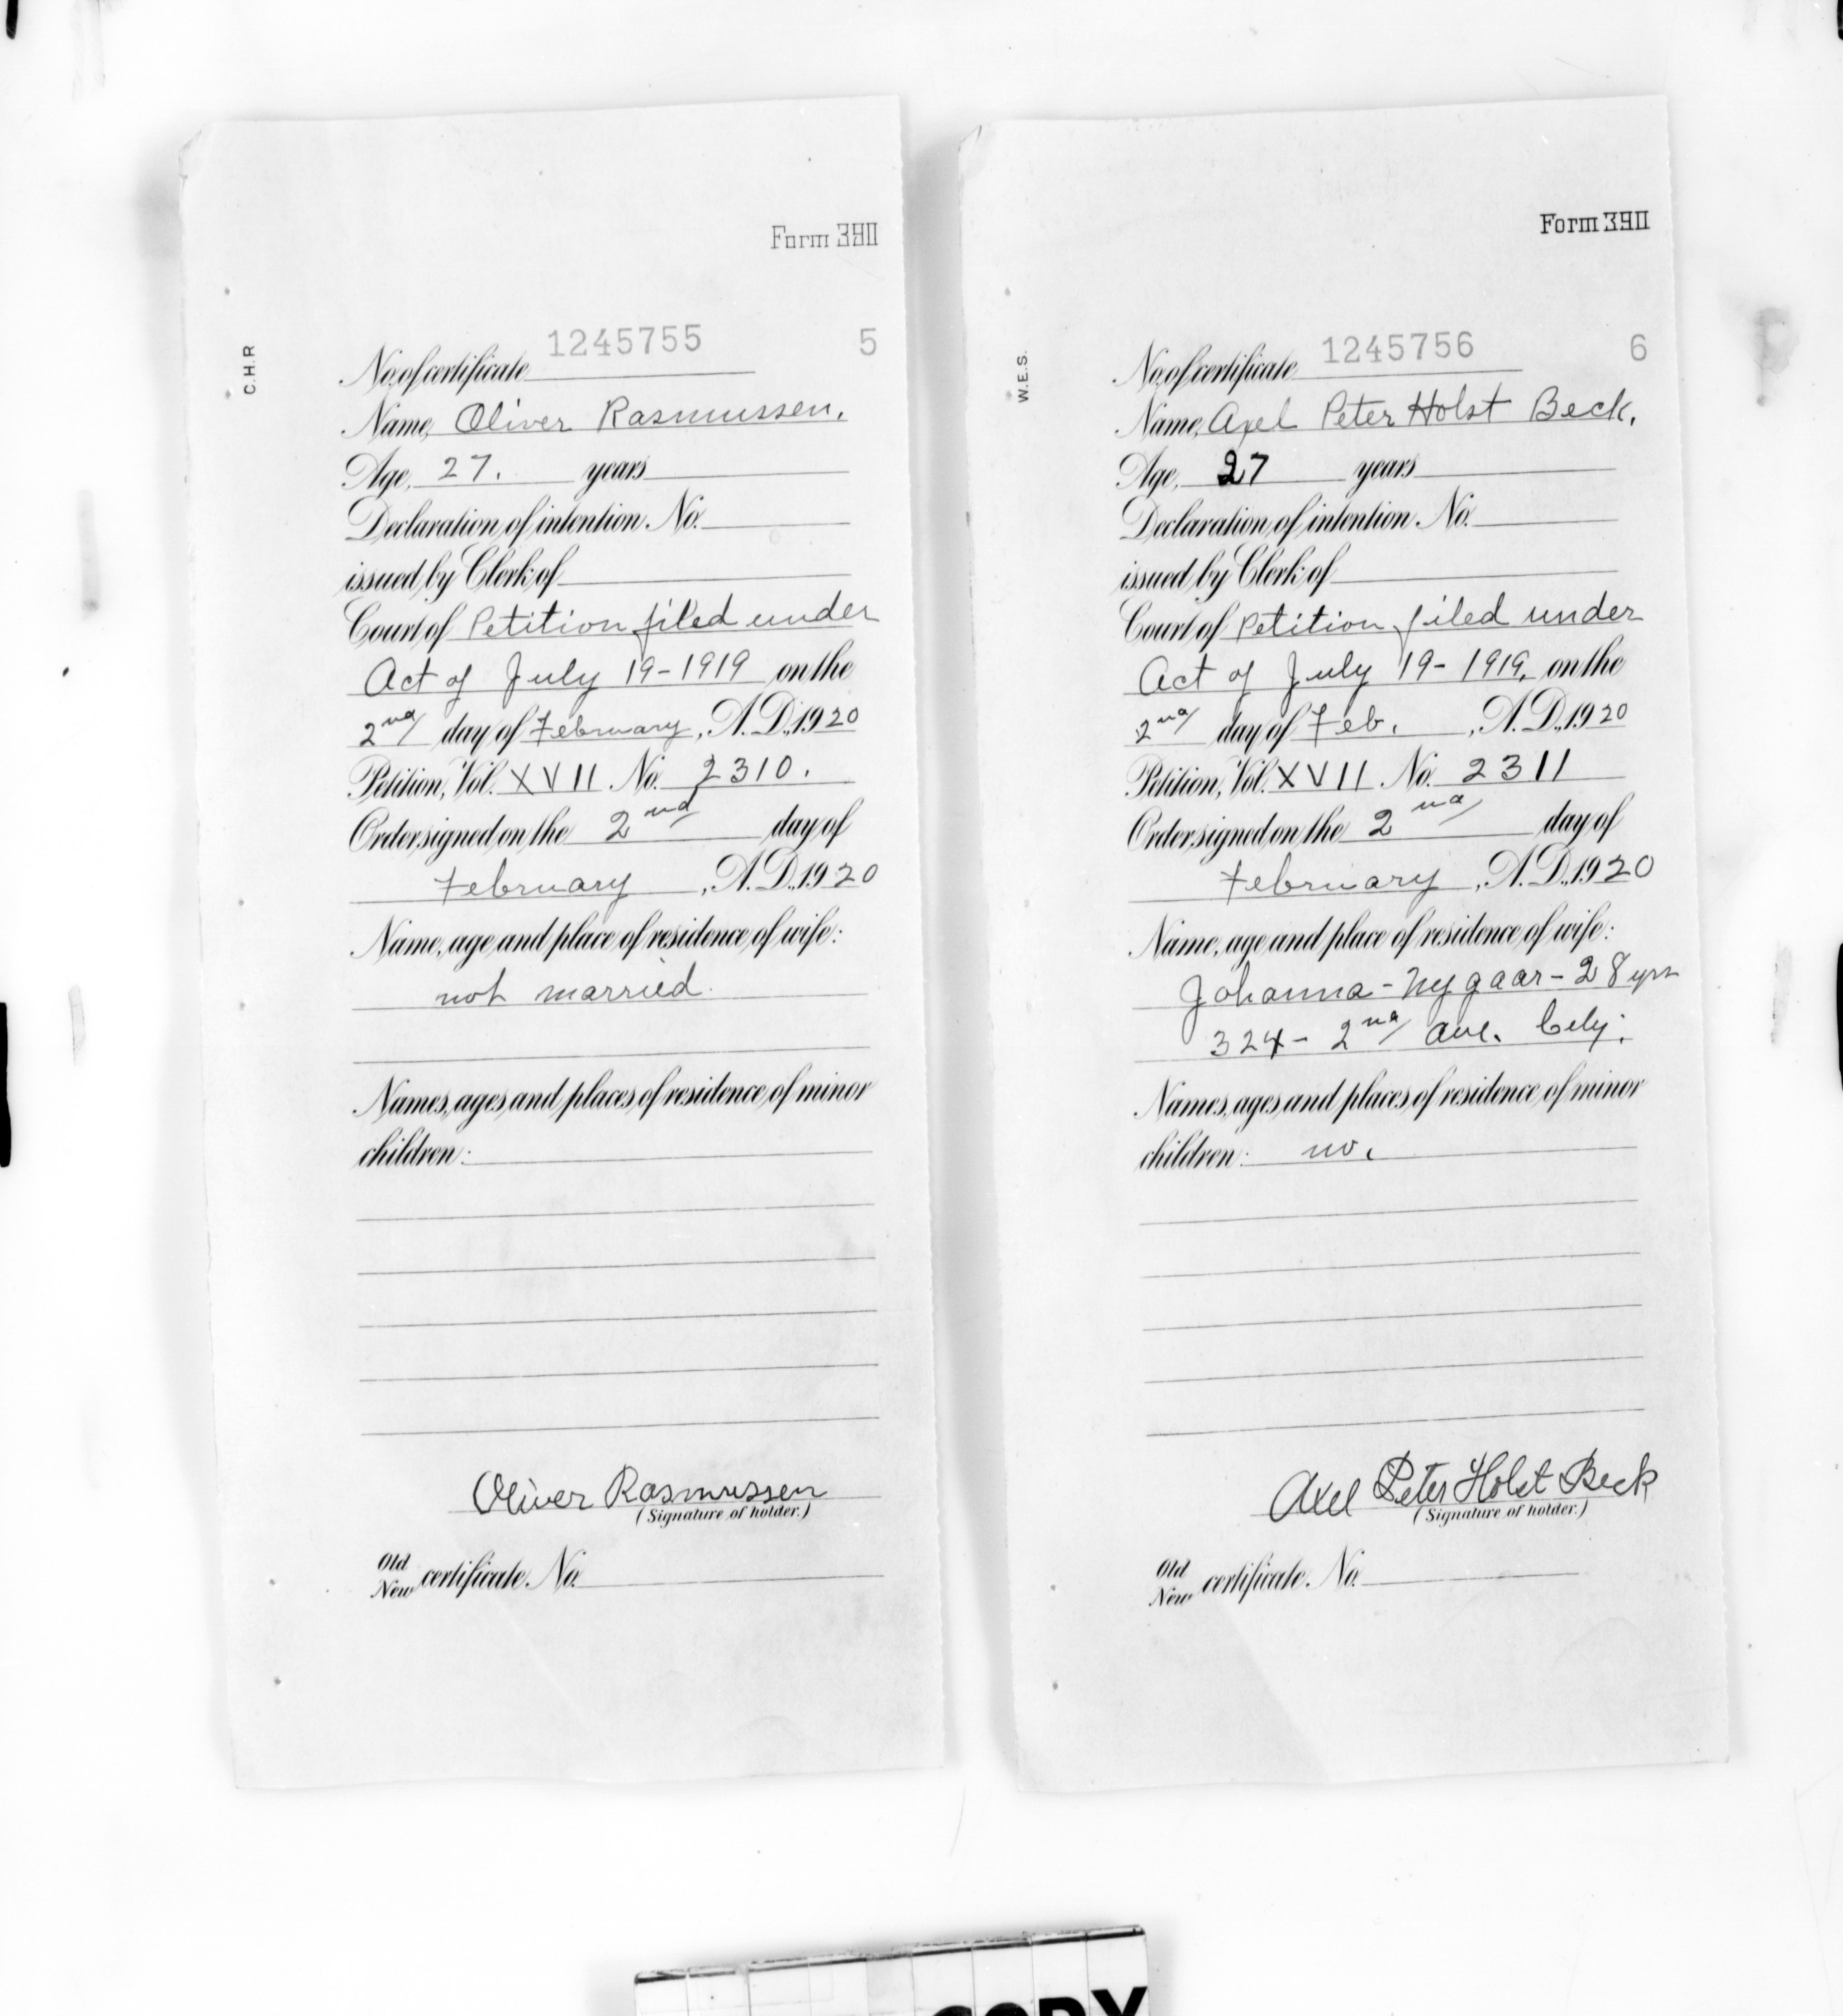 Form 390
C.H.R
1245755 5
No. of certificate
Name, Oliver Rasmussen.
Age, 27. years
Declaration of intention No.
issued by Clerk of
Court of Petition filed under
Act of July 19-1919 on the
2nd day of February, A.D., 1920
Petition, Vol. XVII No. 2310.
Order signed on the 2nd day of
February, A.D., 1920
Name, age and place of residence of wife:
not married.
Names, ages and places of residence of minor
children:
Oliver Rasmussen
(Signature of holder.)
Old
New certificate No.
Form 390
W.E.S.
1245756 6
No. of certificate
Name, Axel Peter Holst Beck.
Age, 27 years
Declaration of intention No.
issued by Clerk of
Court of Petition filed under
Act of July 19-1919, on the
2nd day of Feb., A.D., 1920
Petition, Vol. XVII No. 2311
Order signed on the 2nd day of
February, A.D., 1920
Name, age and place of residence of wife:
Johanna - Nygaar - 28 yrs
324 - 2nd Ave. City.
Names, ages and places of residence of minor
children: no.
Axel Peter Holst Beck
(Signature of holder.)
Old
New certificate No.
COPY